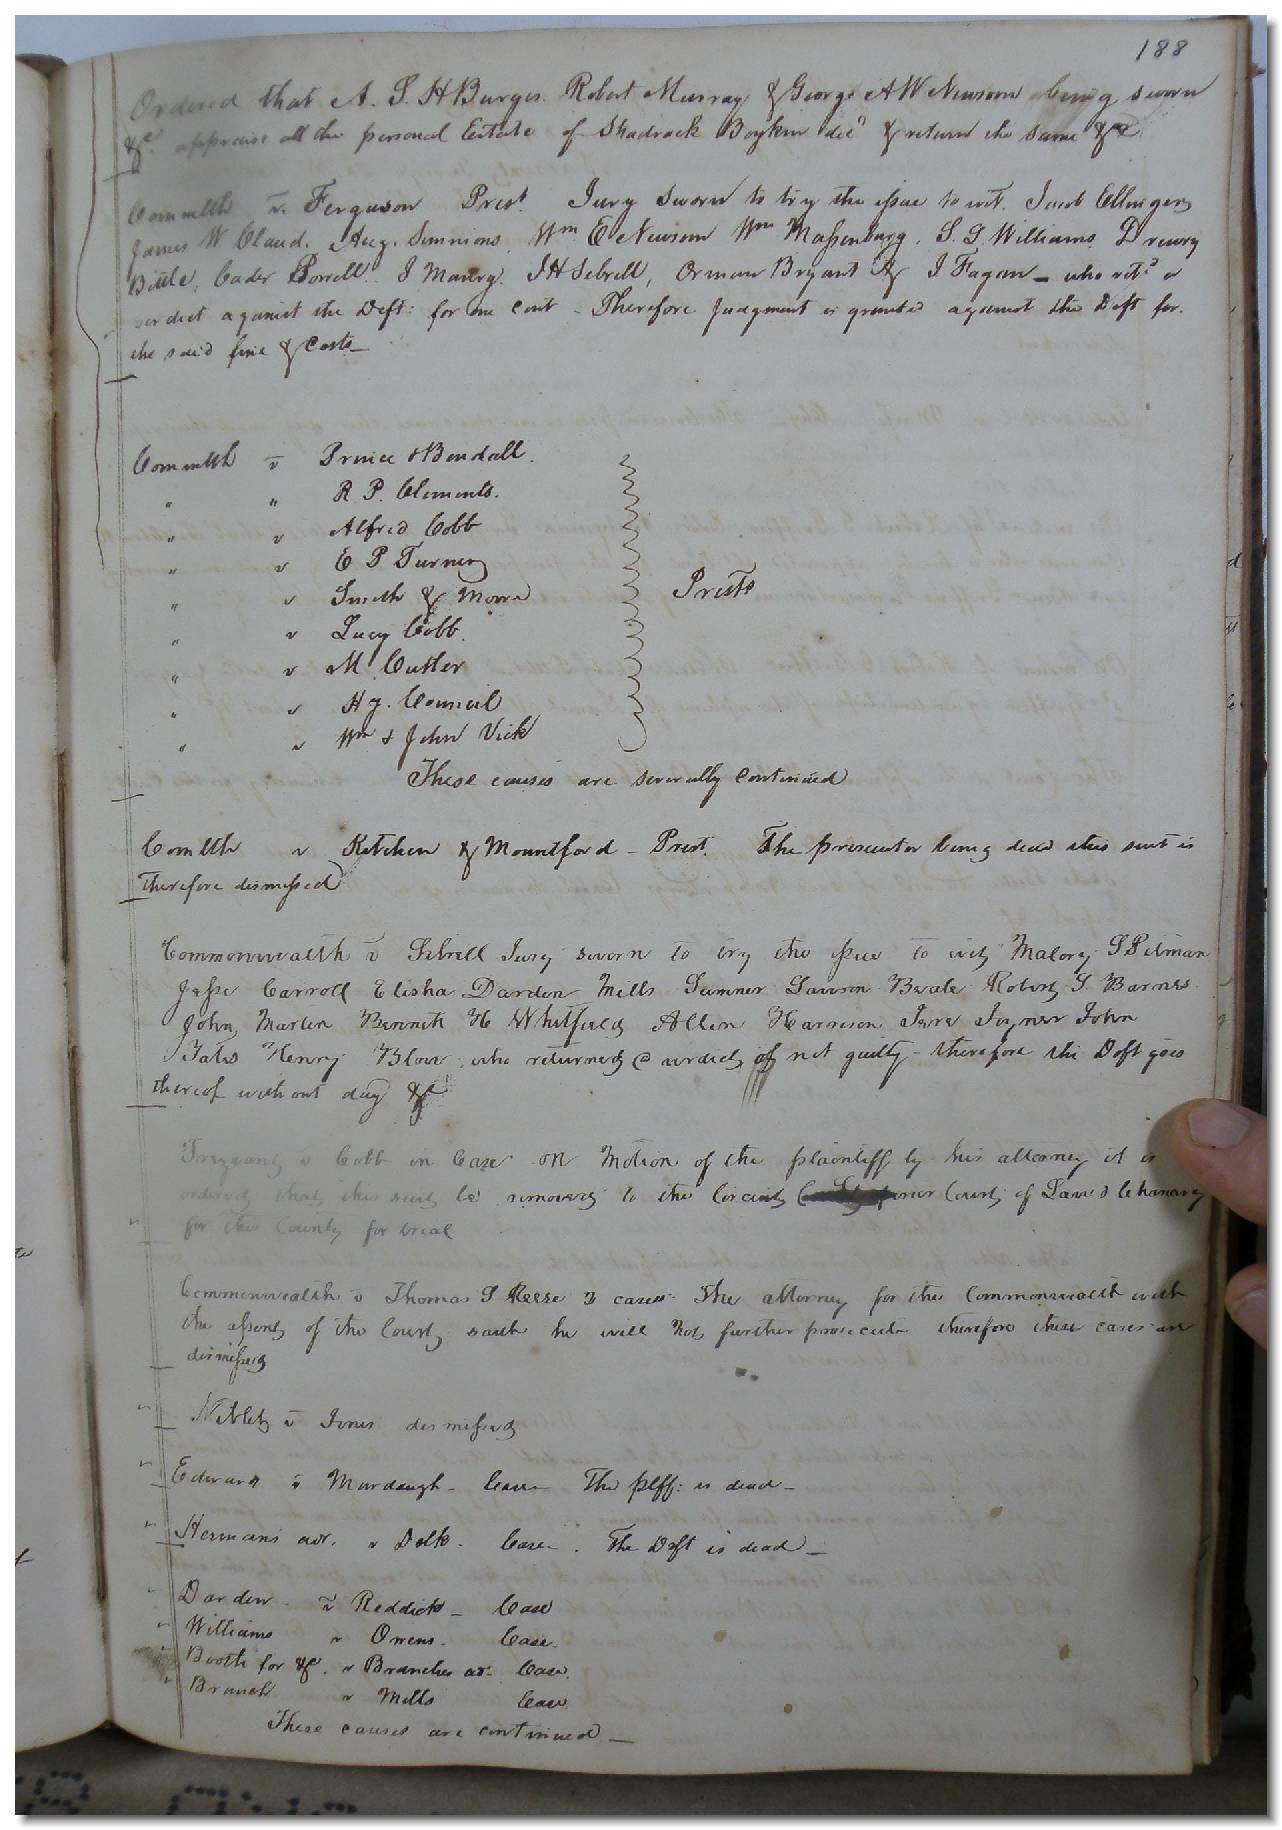 188
Ordered that A. S. H Burges Robert Murray & George A W Newsom being sworn
&c. appraise all the personal Estate of Shadrack Boykin decd & return the same &c
Commlth v. Ferguson Prest. Jury sworn to try the issue to wit. Jacob Ellinger
James W Claud. Aug. Simmons Wm E Newsom Wm Massenburg. S. G. Williams. Drewry
Bittle, Cader Porrell. J Maury. J H Sebrell, Orman Bryant & J Fagan _ who retd a
verdict against the Deft: for one cent - Therefore Judgment is granted against the Deft for.
the said fine & Costs _
Commlth v Prince & Bendall.
" " R P. Clements.
" v Alfred Cobb
" v E P Turner
" v Smith & Moore Prests
" v Lucy Cobb.
" v M Cutler
" v Hy. Council
" v Wm & John Vick
These causes are severally continued
Comlth v Kitchen & Mountford - Prest. The prosecutor being dead this suit is
therefore dismissed
Commonwealth v Sebrell Jury sworn to try the issue to wit Malory S Pitman
Jesse Carroll Elisha Darden Mills Sumner Lawson Beale Robert S Barnes
John, Marlen Bennett H Whitfield Allen Harrison Jere Joyner John
Bales Henry Blow who returned a verdict of not guilty - therefore the Deft goes
thereof without day &c
v Cobb in Case on Motion of the plaintiff by his attorney it is
ordered that this suit be removed to the Circuit Superior Court of Law & Chancery
for this County for trial
Commonwealth v Thomas S Reese 3 cases The attorney for the Commonwealth with
the assent of the Court saith he will not further prosecute therefore these cases are
dismissed
Niblet v Jones dismissed
Edward v Murdaugh - Case - The plff: is dead -
Hermans adr. v Delk - Case - . The Deft is dead -
Darden - v Reddick - Case
Williams v Owens. Case.
Booth for &c. v Branches ar. Case.
Branch v Mills Case
These causes are continued _